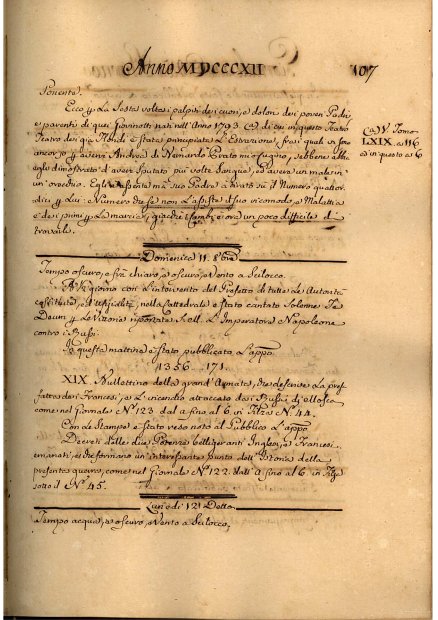 Anno MDCCCXII 107
Ponente.
Ecco p. La Sesta volta i palpiti dei cuori, e dolori dei poveri Padri
e parenti di quei Giovanotti nati nell'Anno 1793 (a) di cui in questo Teatro
(a) V. Tomo
LXIX. a 116
ed in questo a 6
Teatro dei già Mondi è stata principiata L'Estrazione, fra i quali vi sono
ancor p. gl'averi Andrea di Bernardo mio cugino, sebbene abbia
egli dimostrato d'aver sputato più volte Sangue, ed avere un male in
un'orecchio. Egli assente ma suo Padre a tirato su il Numero quattor-
dici p. Lui: Numero che se non L'assiste il suo incomodo e Malattia
e dei primi p. La marcia; giacchè i Cambi è ora un poco difficile di
trovarlo.
Domenica 11. 8bre
Tempo oscuro, e frà chiaro, e oscuro, e Vento a Scilocco.
giorno con L'intervento del Prefetto di tutte Le Autorità
costituite, e Uffizialità, nella Cattedrale è stato cantato Solenne Te
Deum p. Le Vittorie riportate S. M. L'Imperatore Napoleone
contro i Russi.
In questa mattina è stato pubblicato L'app.o
1356 . 171.
XIX. Bullettino della grand'Armata, che descrive La pref.
fattasi dai Francesi, e L'incendio attaccato dai Russi di Mosca
come nel Giornale N.° 123 dal a fino al 6 in Filza N. 44.
Con Le Stampe è Stato reso noto al Pubblico L'app.o
Decreti dalle due Potenze belligeranti Inglesi, e Francesi
emanati, e che formano un'interessante punto dell'Istoria della
presente guerra, come nel Giornale N.° 122. dall'a fino al 6 in Filza
sotto il N.° 45.
Lunedì 12 Detto
Tempo acqua, e oscuro, e Vento a Scilocco,